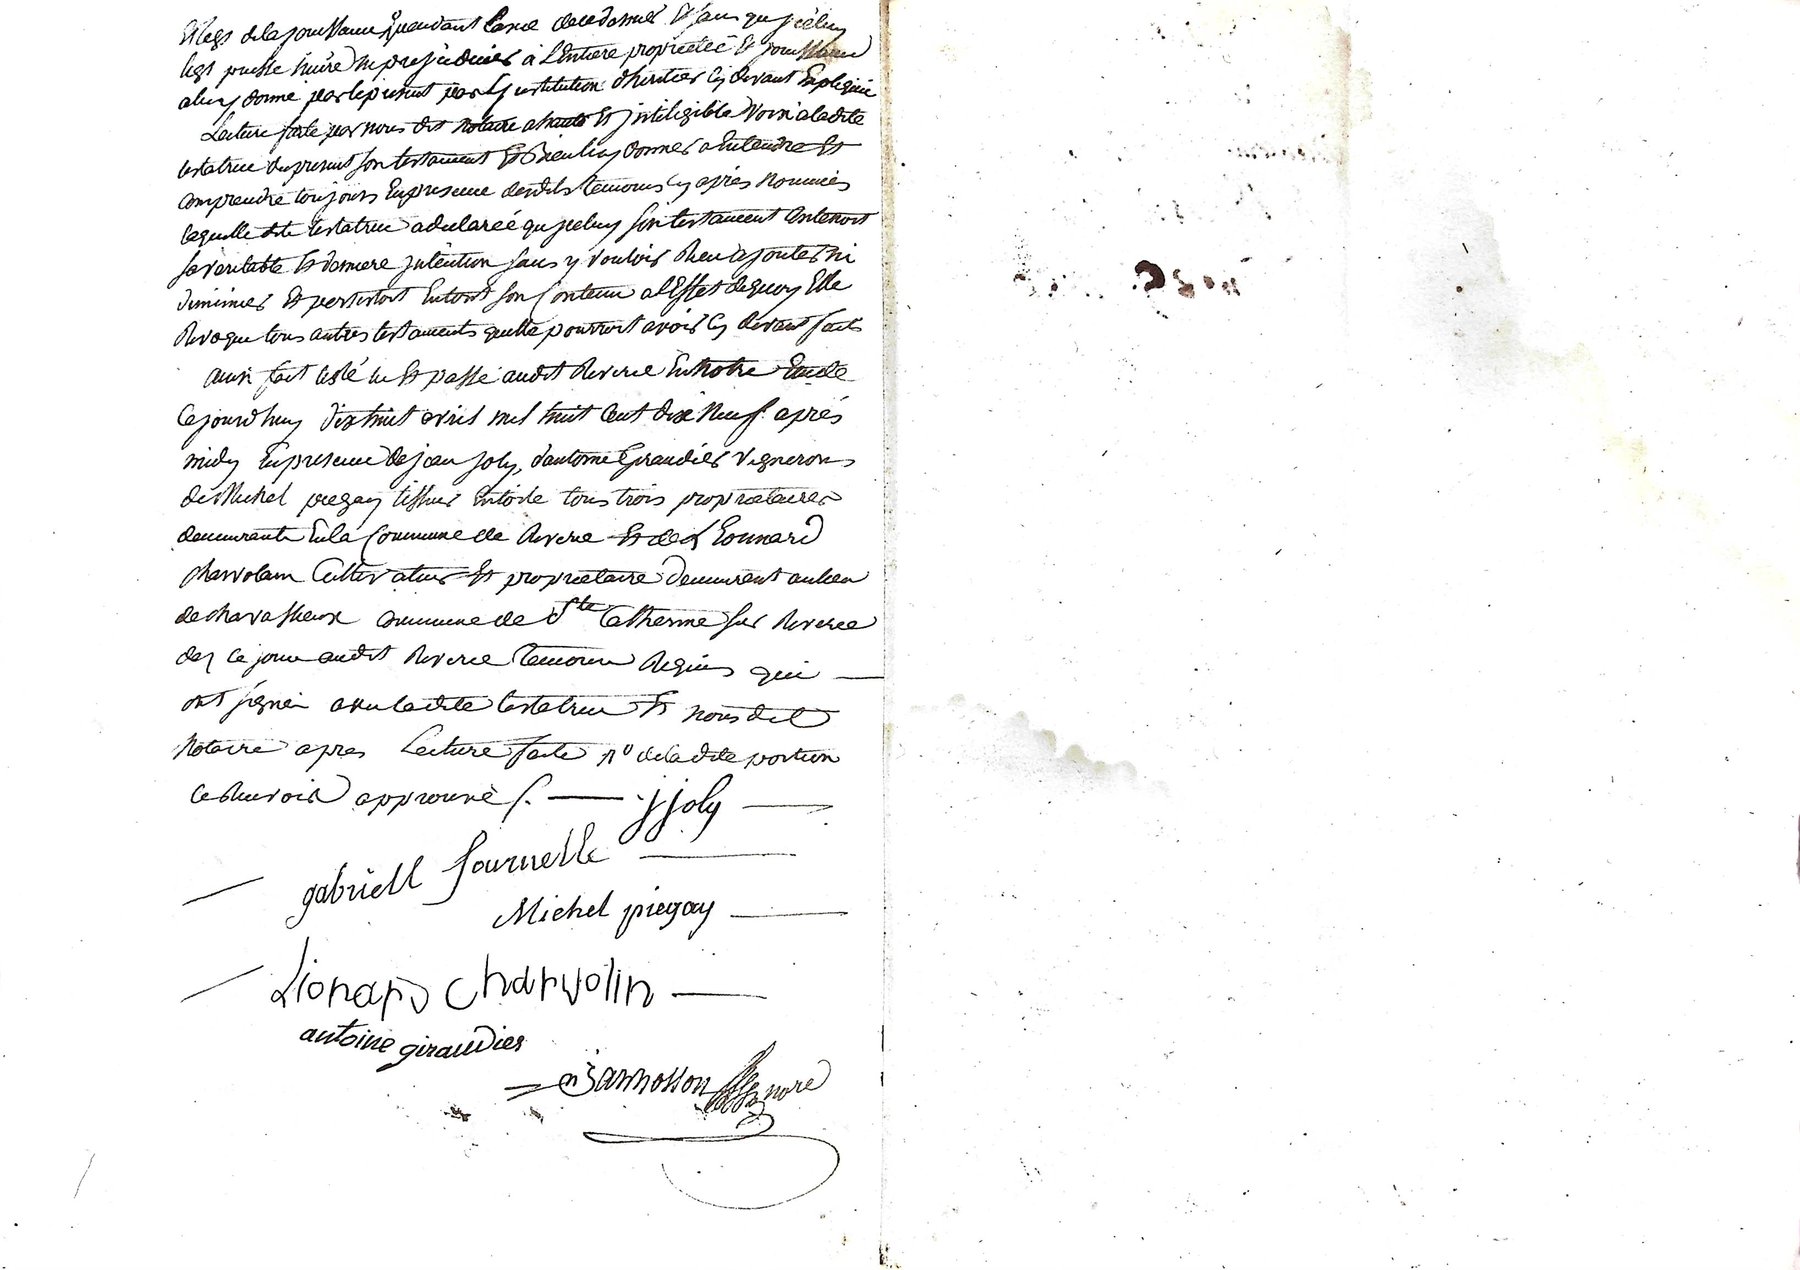 Et legs de la jouissance pendant l'ane de ce dernier Et sans qu jcéluy
legt puisse nuire ny prejudicier à L'Entiere proprietéé Et jouissance
aluy donné par le present par L'jnstitution d'heritier cy devant Expliquée
Lecture faite par nous dit Notaire a haute Et jntiligible Voix a ladite
testatrice du present son testament Et bien luy donner a Entendre Et
comprendre toujours En presence desdits temoins cy après Nommés
laquelle dite testatrice a declareé qu jceluy son testament Contenoit
sa veritable Et derniere jntention sans y vouloir Rien ajouter ni
diminuer Et persistoit En tout son Contenu a l'Effet de quoy Elle
Revoque tous autres testaments quelle pourroit avoir cy devant faits
ainsi fait testé lu Et passé audit Riverie En Notre Etude
Cejourd'huy dix huit avril mil huit Cent dix Neuf après
midy En presence de jean joly, d'antoine Giraudier Vignerons
de Michel piegay tissier En toile tous trois proprietaires
demeurants En la Commune de Riverie Et de Léonnard
Charvolain Cultivateur Et proprietaire demeurent au lieu
de Chavassieux Commune de Ste Catherine sur Riverie
de ce jour audit Riverie temoins Requis qui
ont signé avec ladite testatrice Et nous dit
Notaire apres Lecture faite Ro de ladite portion
Ce Renvoid approuvé f. j joly
gabriell fournelle
Michel piegay
Lionard Charvolin
antoine giraudier
Bannosson Nore